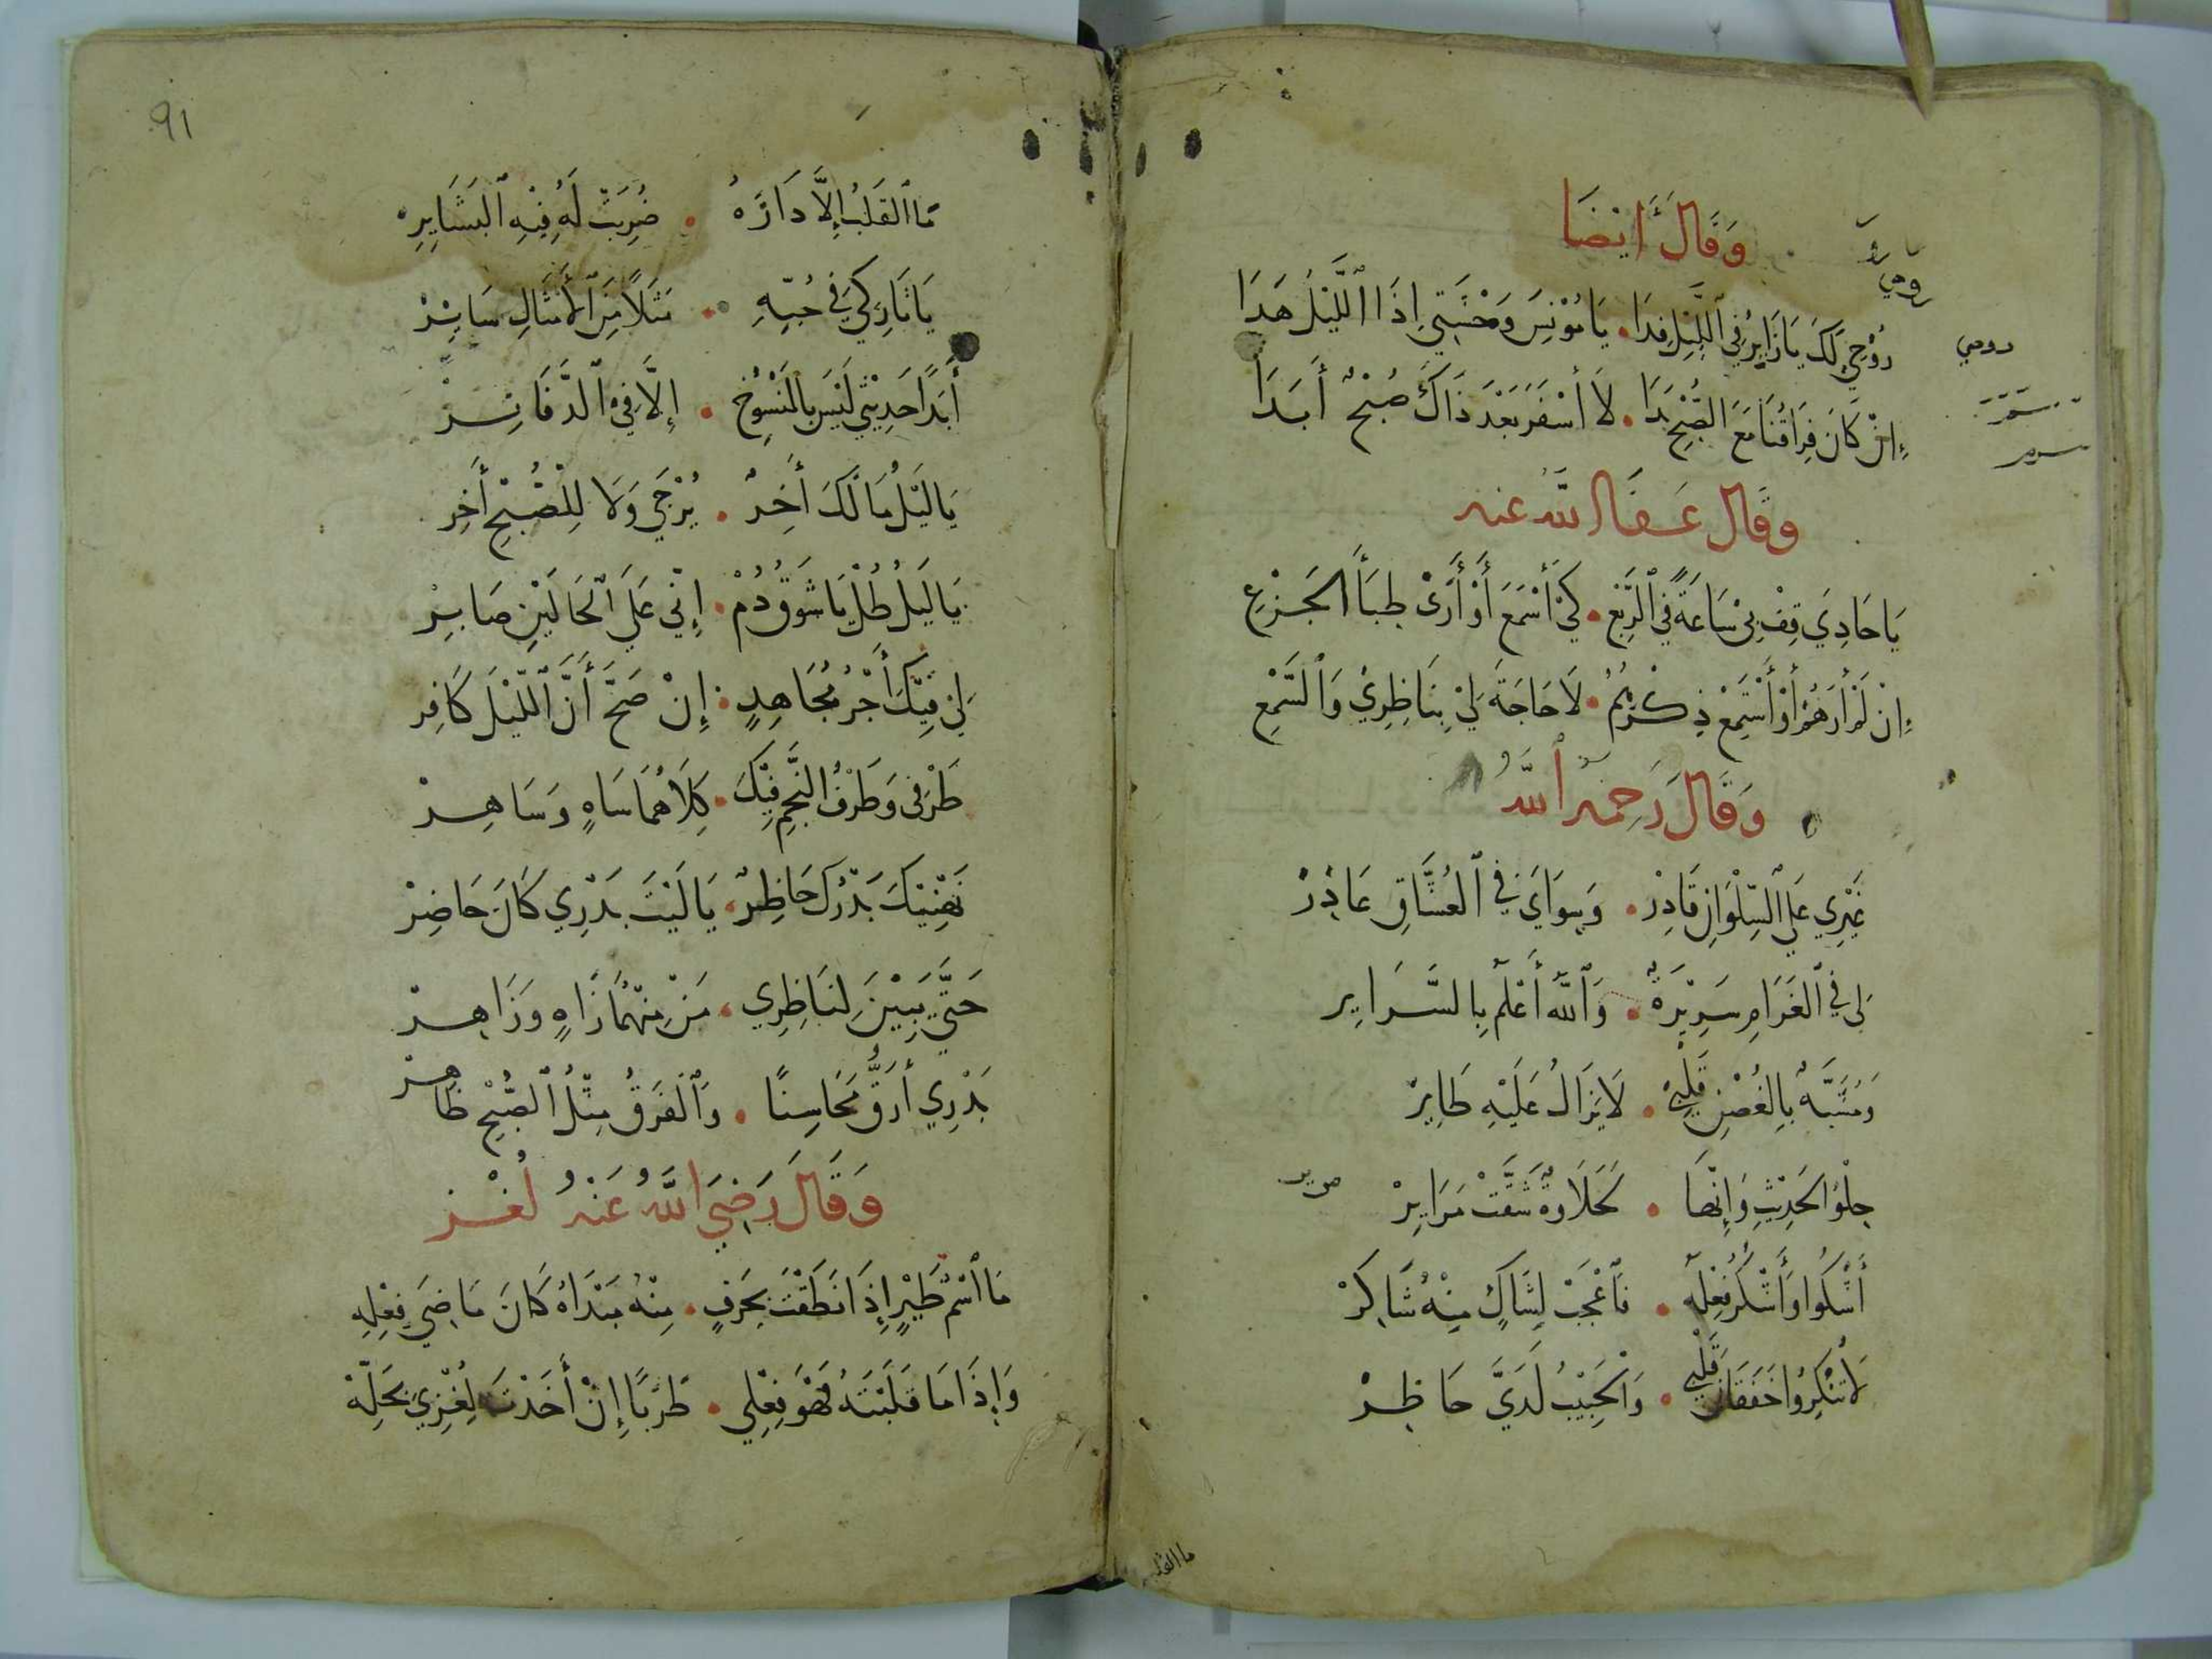 وَقَالَ أَيْضَا
رُوْحِي لَكَ يَا زَايِرُ فِي اللَّيْلِ فِدَا . يَا مُوْنِسَ وَحْشَتِي إِذَا اللَّيْلُ هَدَا
إِنْ كَانَ فِرَاقُنَا مَعَ الصُّبْحِ بَدَا . لَا أَسْفَرَ بَعْدَ ذَاكَ صُبْحٌ أَبَدَا
وقَال عَفَا اللَّه عنه
يَا حَادِيَ قِفْ بِيْ سَاعَةً فِي الرَّبْعِ . كَيْ أَسْمَعَ أَوْ أَرَىْ ظِبَأَ الْجَزْعِ
إِنْ لَمْ أَرَهُمْ أَوْ أَسْتَمِعْ ذِكْرَهُمُ . لَا حَاجَةَ لِيْ بِنَاظِرِيْ وَالسَّمْعِ
وَقَالَ رَحِمَهُ اللَّهُ
غَيْرِي عَلَى السِّلْوَانِ قَادِرْ . وَسِوَايَ فِي الْعُشَّاقِ غَادِرْ
لِي فِي الْغَرَامِ سَرِيْرَةٌ . وَاللَّهُ أَعْلَمُ بِالسَّرَايِر
وَمُشَبَّهٌ بِالْغُصْنِ قَلْبِيْ . لَا يَزَالُ عَلَيْهِ طَايِرْ
حِلْوُ الْحَدِيْثِ وَإِنَّهَا . لَحَلَاوَةٌ شَقَّتْ مَرَايِرْ
أَشْكُوا وَأَشْكُرُ فِعْلَهُ . فَاعْجَبْ لِشَاكٍ مِنْهُ شَاكِرْ
لَا تُنْكِرُوا خَفَقَانَ قَلْبِي . وَالْحَبِيْبُ لَدَيَّ حَاظِرْ
ما القلب
رومي
سمر
91
مَا الْقَلْبُ إِلَّا دَارُهُ . ضُرِبَتْ لَهُ فِيْهِ الْبَشَايِرِ
يَا تَارِكِي فِي حُبِّهِ . مَثَلًا مِنَ الْأَمْثَالِ سَايِرْ
أَبَدًا حَدِيْثِي لَيْسَ بِالْمَنْسُوْخِ . إِلَّا فِي الدَّفَاتِرْ
يَا لَيْلُ مَا لَكَ أَخِرٌ . يُرْجَى وَلَا لِلصُّبْحِ أَخِر
يَا لَيْلُ طُلْ يَا شَوْقُ دُمْ . إِنِّي عَلَى الْحَالَيْنِ صَابِرْ
لِيْ فِيْكَ أَجْرُ مُجَاهِدٍ . إِنْ صَحَّ أَنَّ اللَّيْلَ كَافِر
طَرْفِي وَطَرْفُ النَّجْمِ فِيْكَ . كِلَاهُمَا سَاهٍ وَسَاهِرْ
يَهْنِيْكَ بَدْرُكَ حَاظِرٌ . يَا لَيْتَ بَدْرِي كَانَ حَاضِرْ
حَتَّى يَبِيْنَ لِنَاظِرِي . مَنْ مِنْهُمَا زَاهٍ وَزَاهِرْ
بَدْرِي أَرَقُّ مَحَاسِنًا . وَالْفَرْقُ مِثْلُ الصُّبْحِ ظَاهِرْ
وَقَالَ رَضِيَ اللَّهُ عَنْهُ لُغْز
مَا اسْمُ طَيْرٍ إِذَا نَطَقْتَ بِحَرْفٍ . مِنْهُ مَبْدَاهُ كَانَ مَاضِيَ فِعْلِهِ
وَإِذَا مَا قَلَبْتَهُ فَهْوَ فِعْلِي . طَرَبًا إِنْ أَخَذْتَ لُغْزِيْ بِحَلِّهْ